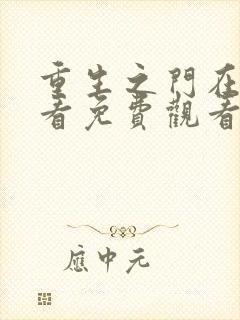 重生之門在
看免費觀看
應中元